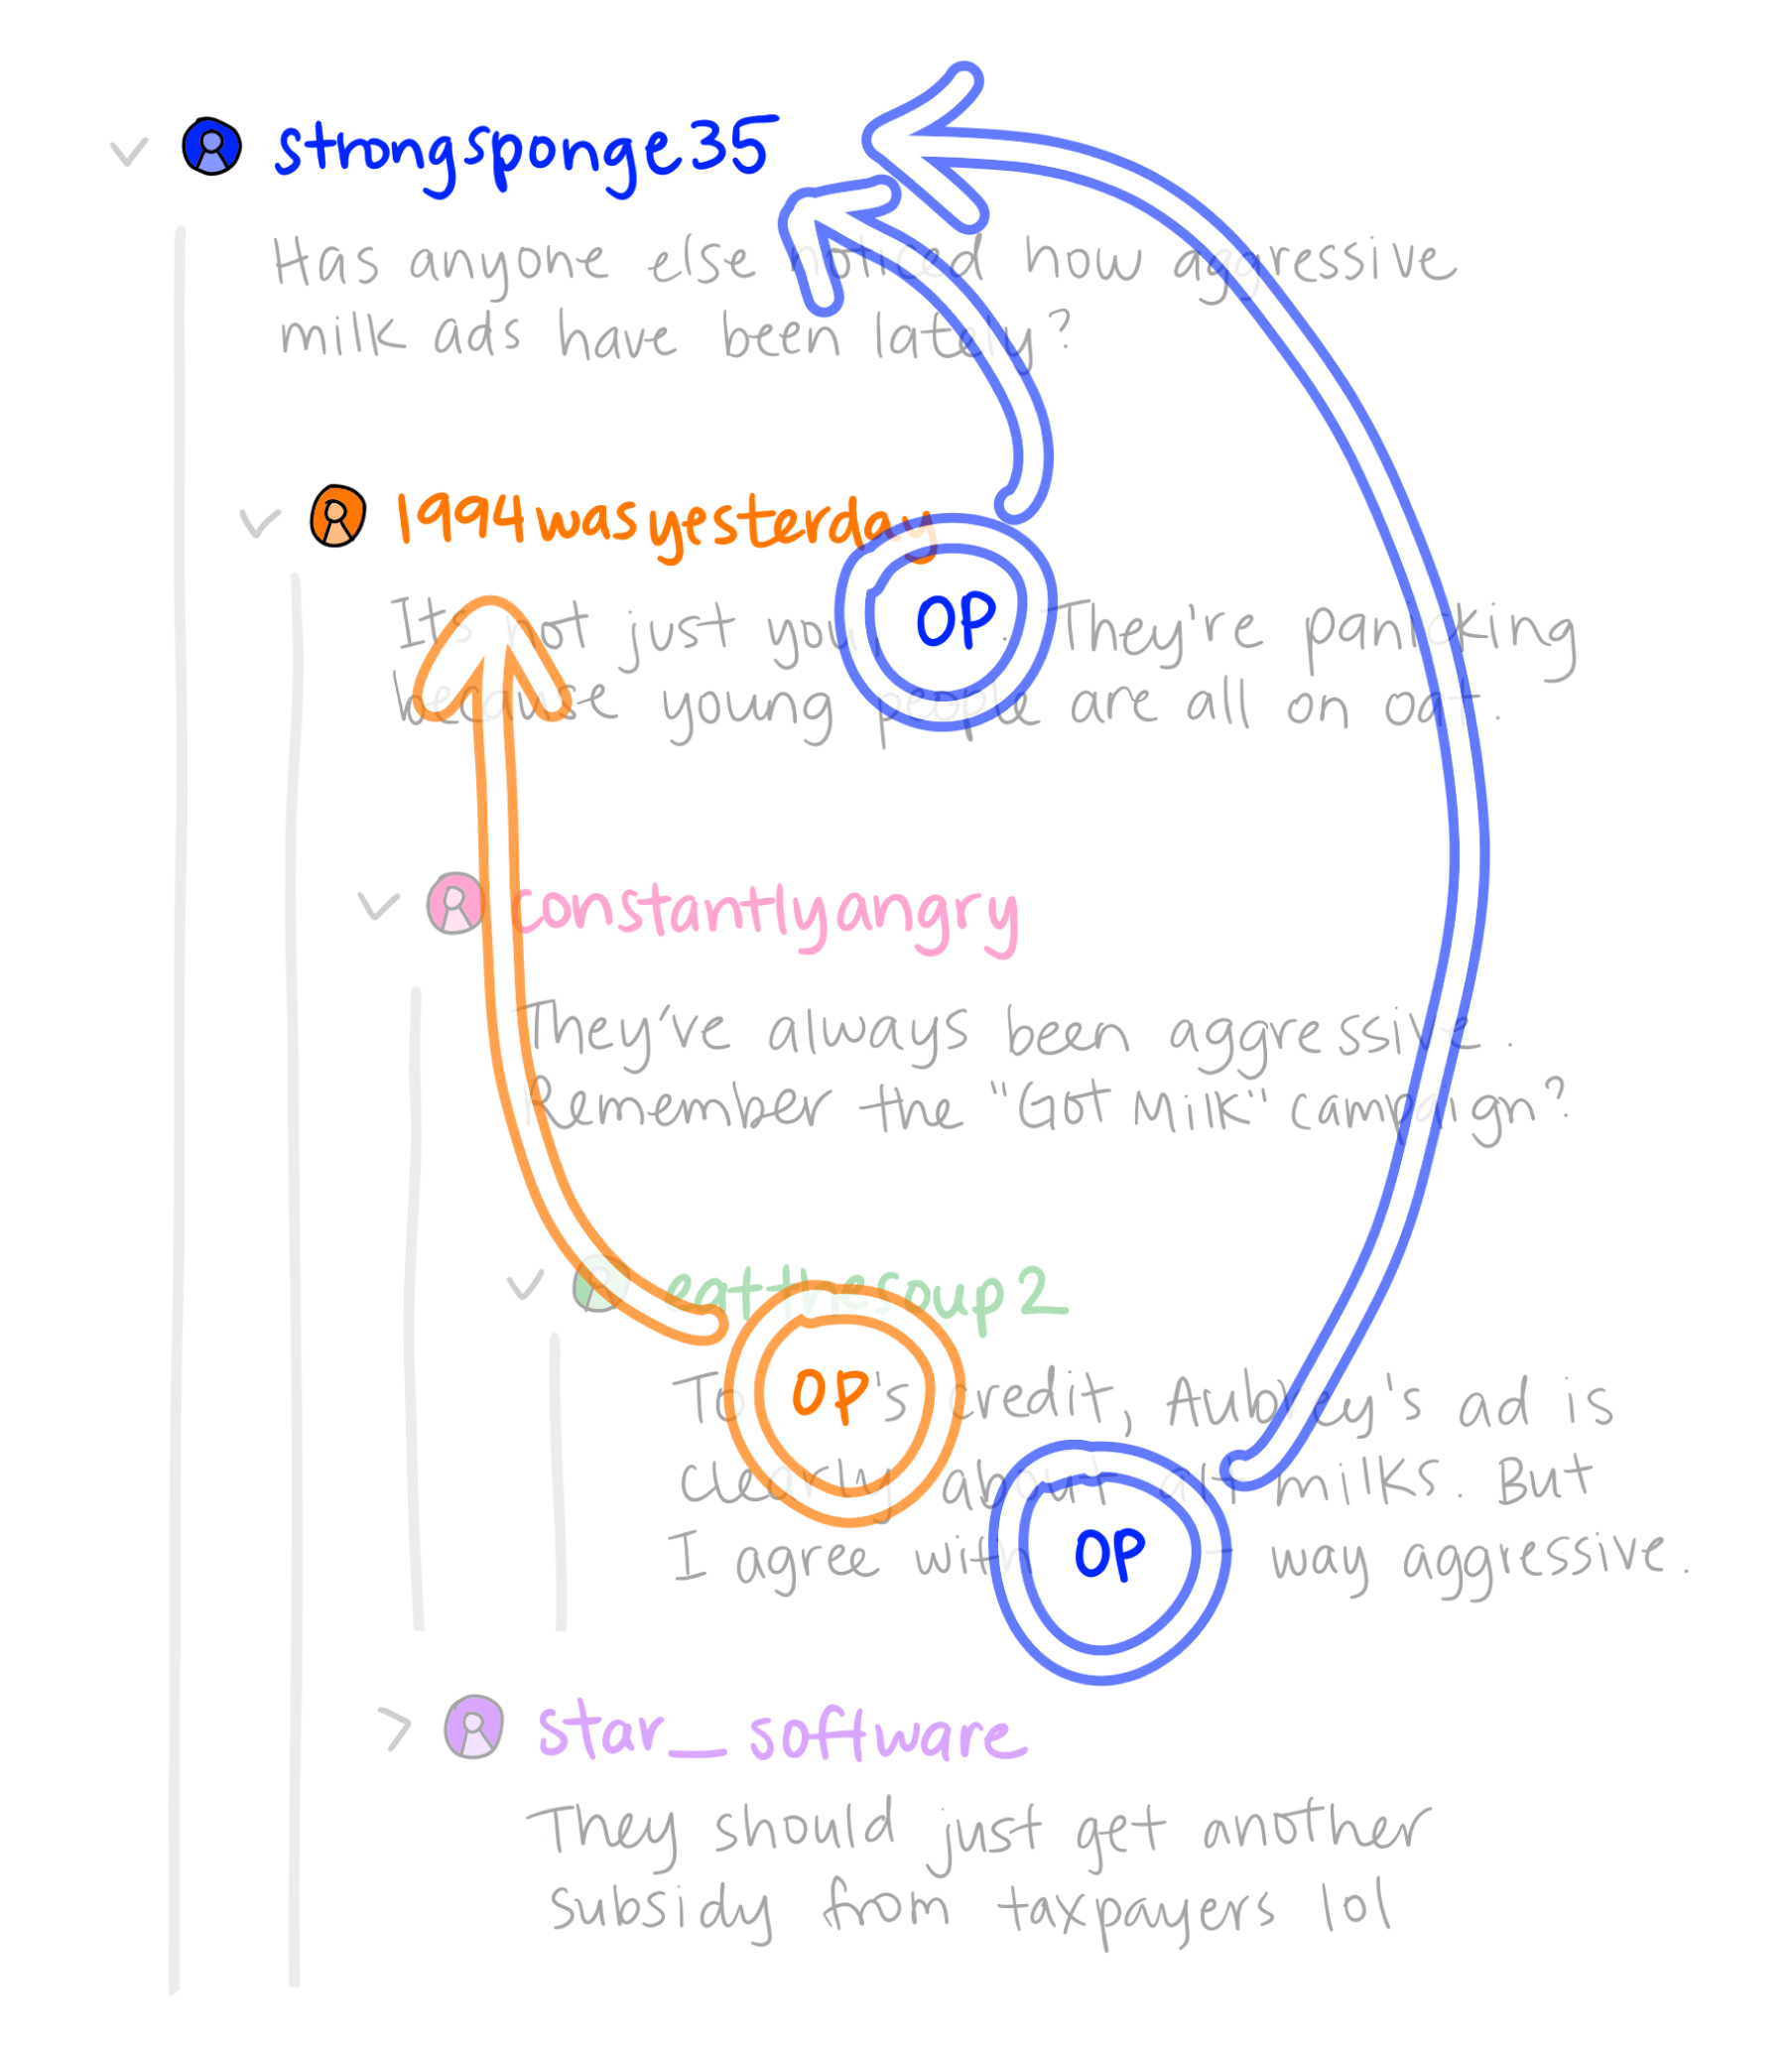 strongsponge35
Has anyone else noticed how aggressive
milk ads have been lately?
1994wasyesterday
It's not just you OP. They're panicking
because young people are all on oat.
constantlyangry
They've always been aggressive.
Remember the "Got Milk" campaign?
eatthesoup2
To OP's credit, Aubrey's ad is
clearly about alt milks. But
I agree with OP - way aggressive.
star_software
They should just get another
subsidy from taxpayers lol